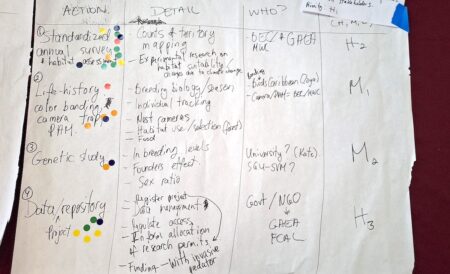 ACTION
DETAIL
WHO?
① Standardized
annual survey
+ habitat assessment
- Counts of territory
mapping
- Experimental research on
habitat suitability/
changes due to climate change
+ GAEA
H2
② Life-history
color banding,
camera trap,
PAM.
- Breeding biology/season
- Individual tracking
- Nest cameras
- Habitat use/selection
- Food
- BirdsCaribbean
M1
③ Genetic study
- In breeding levels
- Founders effect
- Sex ratio
University? (Kate)
SGU-SVM?
M2
④ Data/repository
Project
- Register project
- Data management
- Regulate access
- Inform allocation
of research permits
- Finding - With invasive
predator
Govt/NGO
GAEA
FCAL
H3